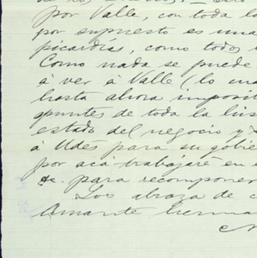 por Valle, con toda la
por supuesto es una
picardia, como todos
Como nada se puede
á ver á Valle (lo una
hasta ahora imposi
apuntes de toda la his
estado del negocio y
á Udes para su gobie
por acá trabajaré en
&c. para recomponer
Los abraza de c
Amante herma